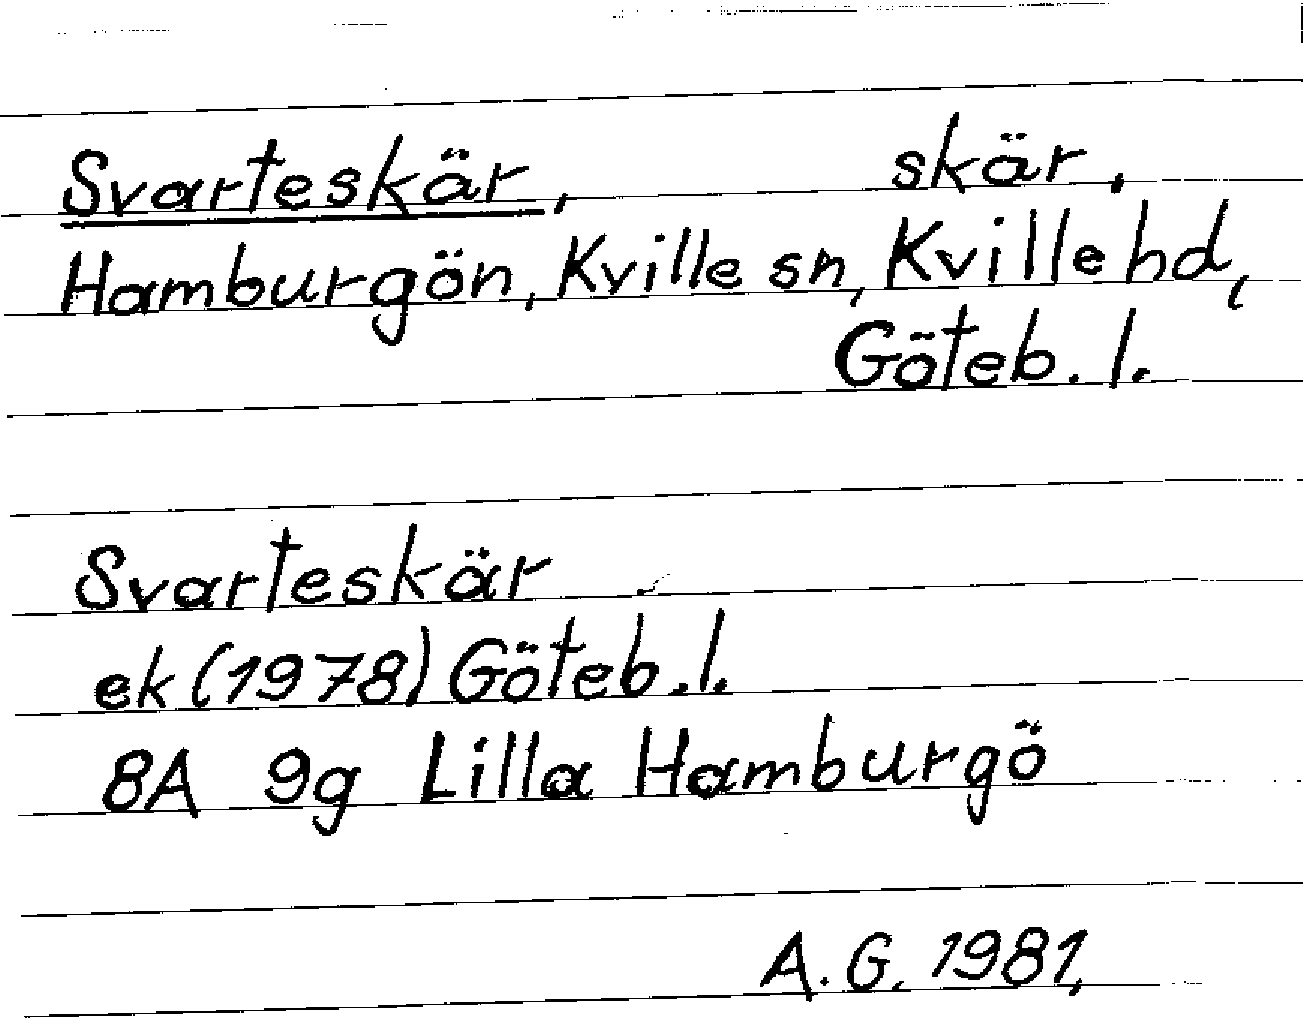 Svarteskär, skär,
Hamburgön, Kville sn, Kville hd,
Göteb. l.
Svarteskär
ek (1978) Göteb. l.
8A 9g Lilla Hamburgö
A. G. 1981,